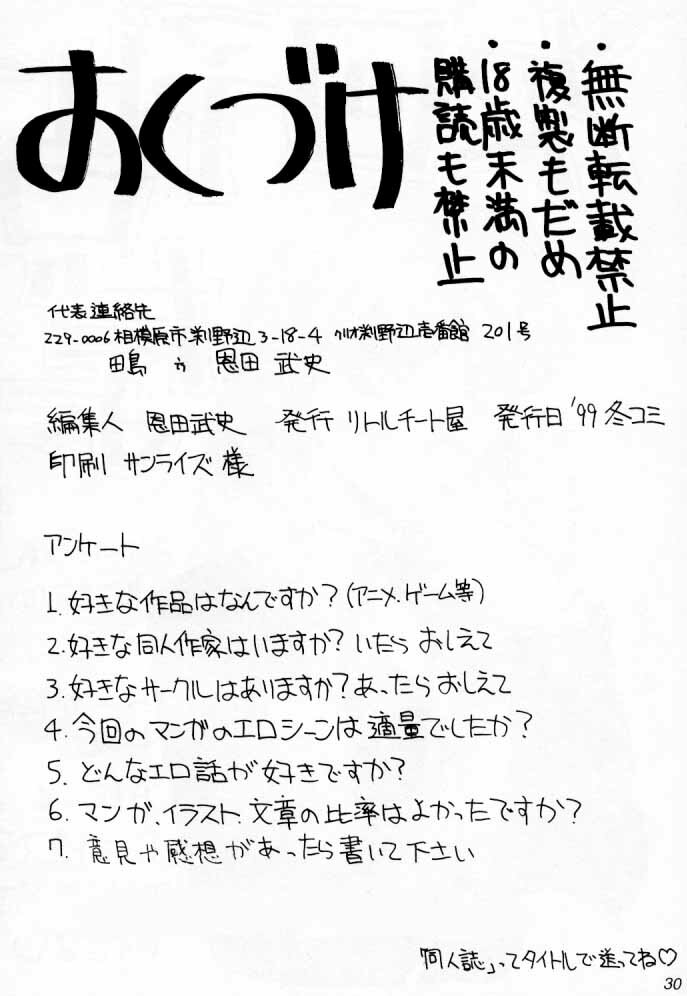 おくづけ
・無断転載禁止
・複製もだめ
・18歳未満の
購読も禁止
代表連絡先
229-0006 相模原市渕野辺3-18-4 クリオ渕野辺壱番館 201号
恩田 武史
編集人 恩田武史 発行 リトルチート屋 発行日 '99冬コミ
印刷 サンライズ様
アンケート
1. 好きな作品はなんですか?(アニメ、ゲーム等)
2. 好きな同人作家はいますか? いたら おしえて
3. 好きなサークルはありますか? あったらおしえて
4. 今回のマンガのエロシーンは適量でしたか?
5. どんなエロ話が好きですか?
6. マンガ、イラスト、文章の比率はよかったですか?
7. 意見や感想があったら書いて下さい
「同人誌」ってタイトルで送ってね♡
30